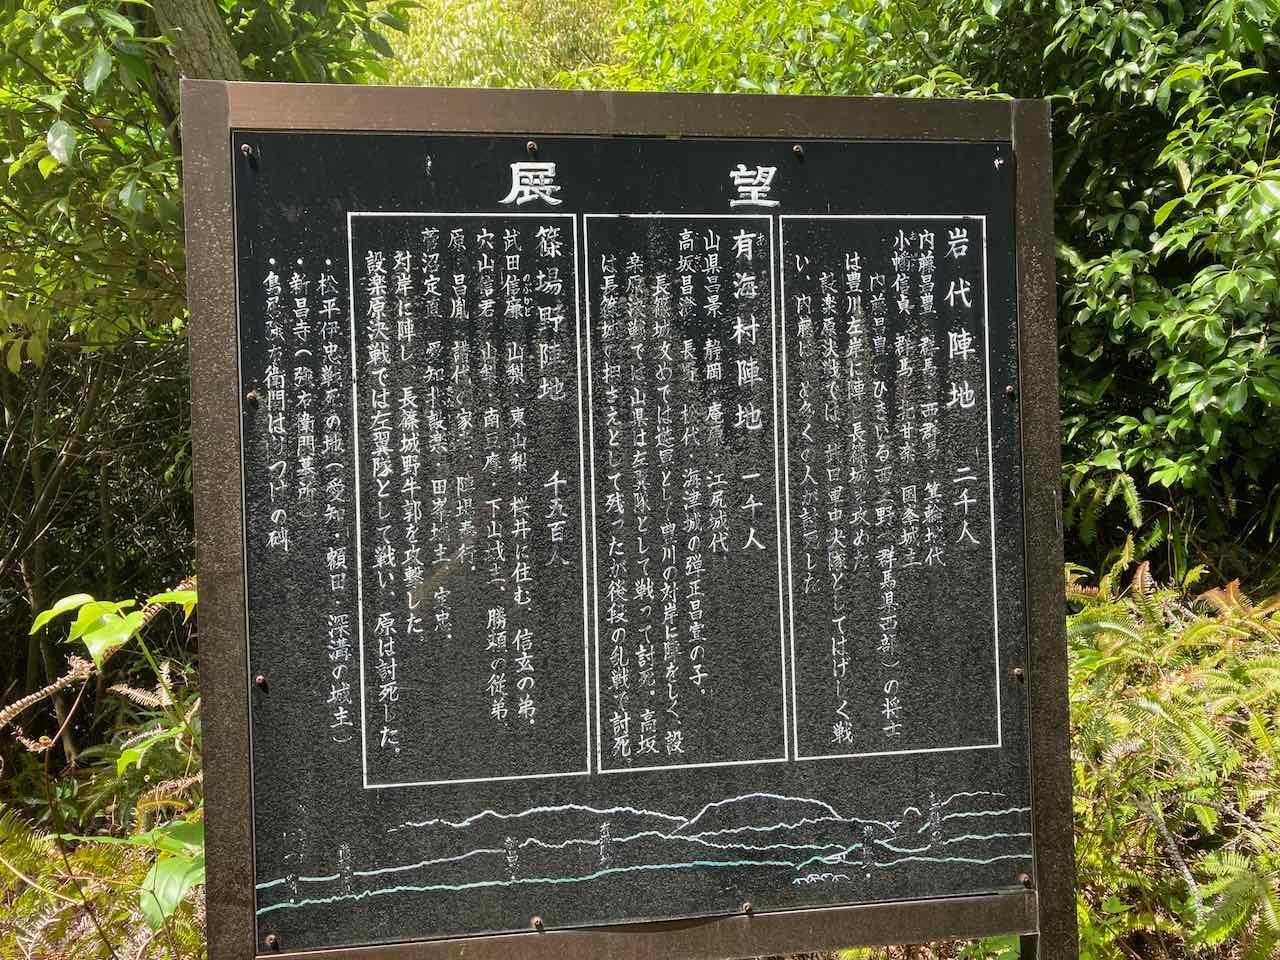 展望
岩代陣地 二千人
内藤昌豊 群馬・西群馬・箕輪城代
小幡信貞 群馬・北甘楽・国峯城主
内藤昌豊のひきいる西上野(群馬県西部)の将士
は豊川左岸に陣し長篠城を攻めた
設楽原決戦では、中央隊としてはげしく戦
い、内藤は多くの人が討死した
有海村陣地 一千人
あるみ
山県昌景 静岡・庵原・江尻城代
高坂昌澄 長野・松代・海津城の弾正昌宣の子。
長篠城攻めでは遊軍として豊川の対岸に陣をしく、設
楽原決戦では山県は左翼隊として戦って討死。高坂
は長篠城の押さえとして残ったが後段の乱戦で討死。
篠場野陣地 千五百人
武田信廉 山梨・東山梨・桜井に住む。信玄の弟。
のぶかど
穴山信君 山梨・南巨摩・下山城主、勝頼の従弟
原 昌胤 譜代の家老、陣場奉行。
菅沼定直 愛知・北設楽・田峯城主・定忠。
対岸に陣し、長篠城野牛郭を攻撃した。
設楽原決戦では左翼隊として戦い、原は討死した。
・松平伊忠戦死の地(愛知・額田・深溝の城主)
・新昌寺(強右衛門墓所)
・鳥居強右衛門はりつけの碑